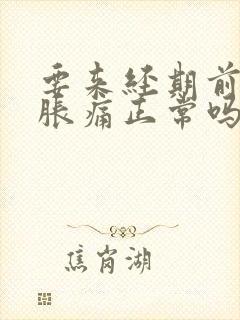 要来经期前
胀痛正常吗
焦岗湖